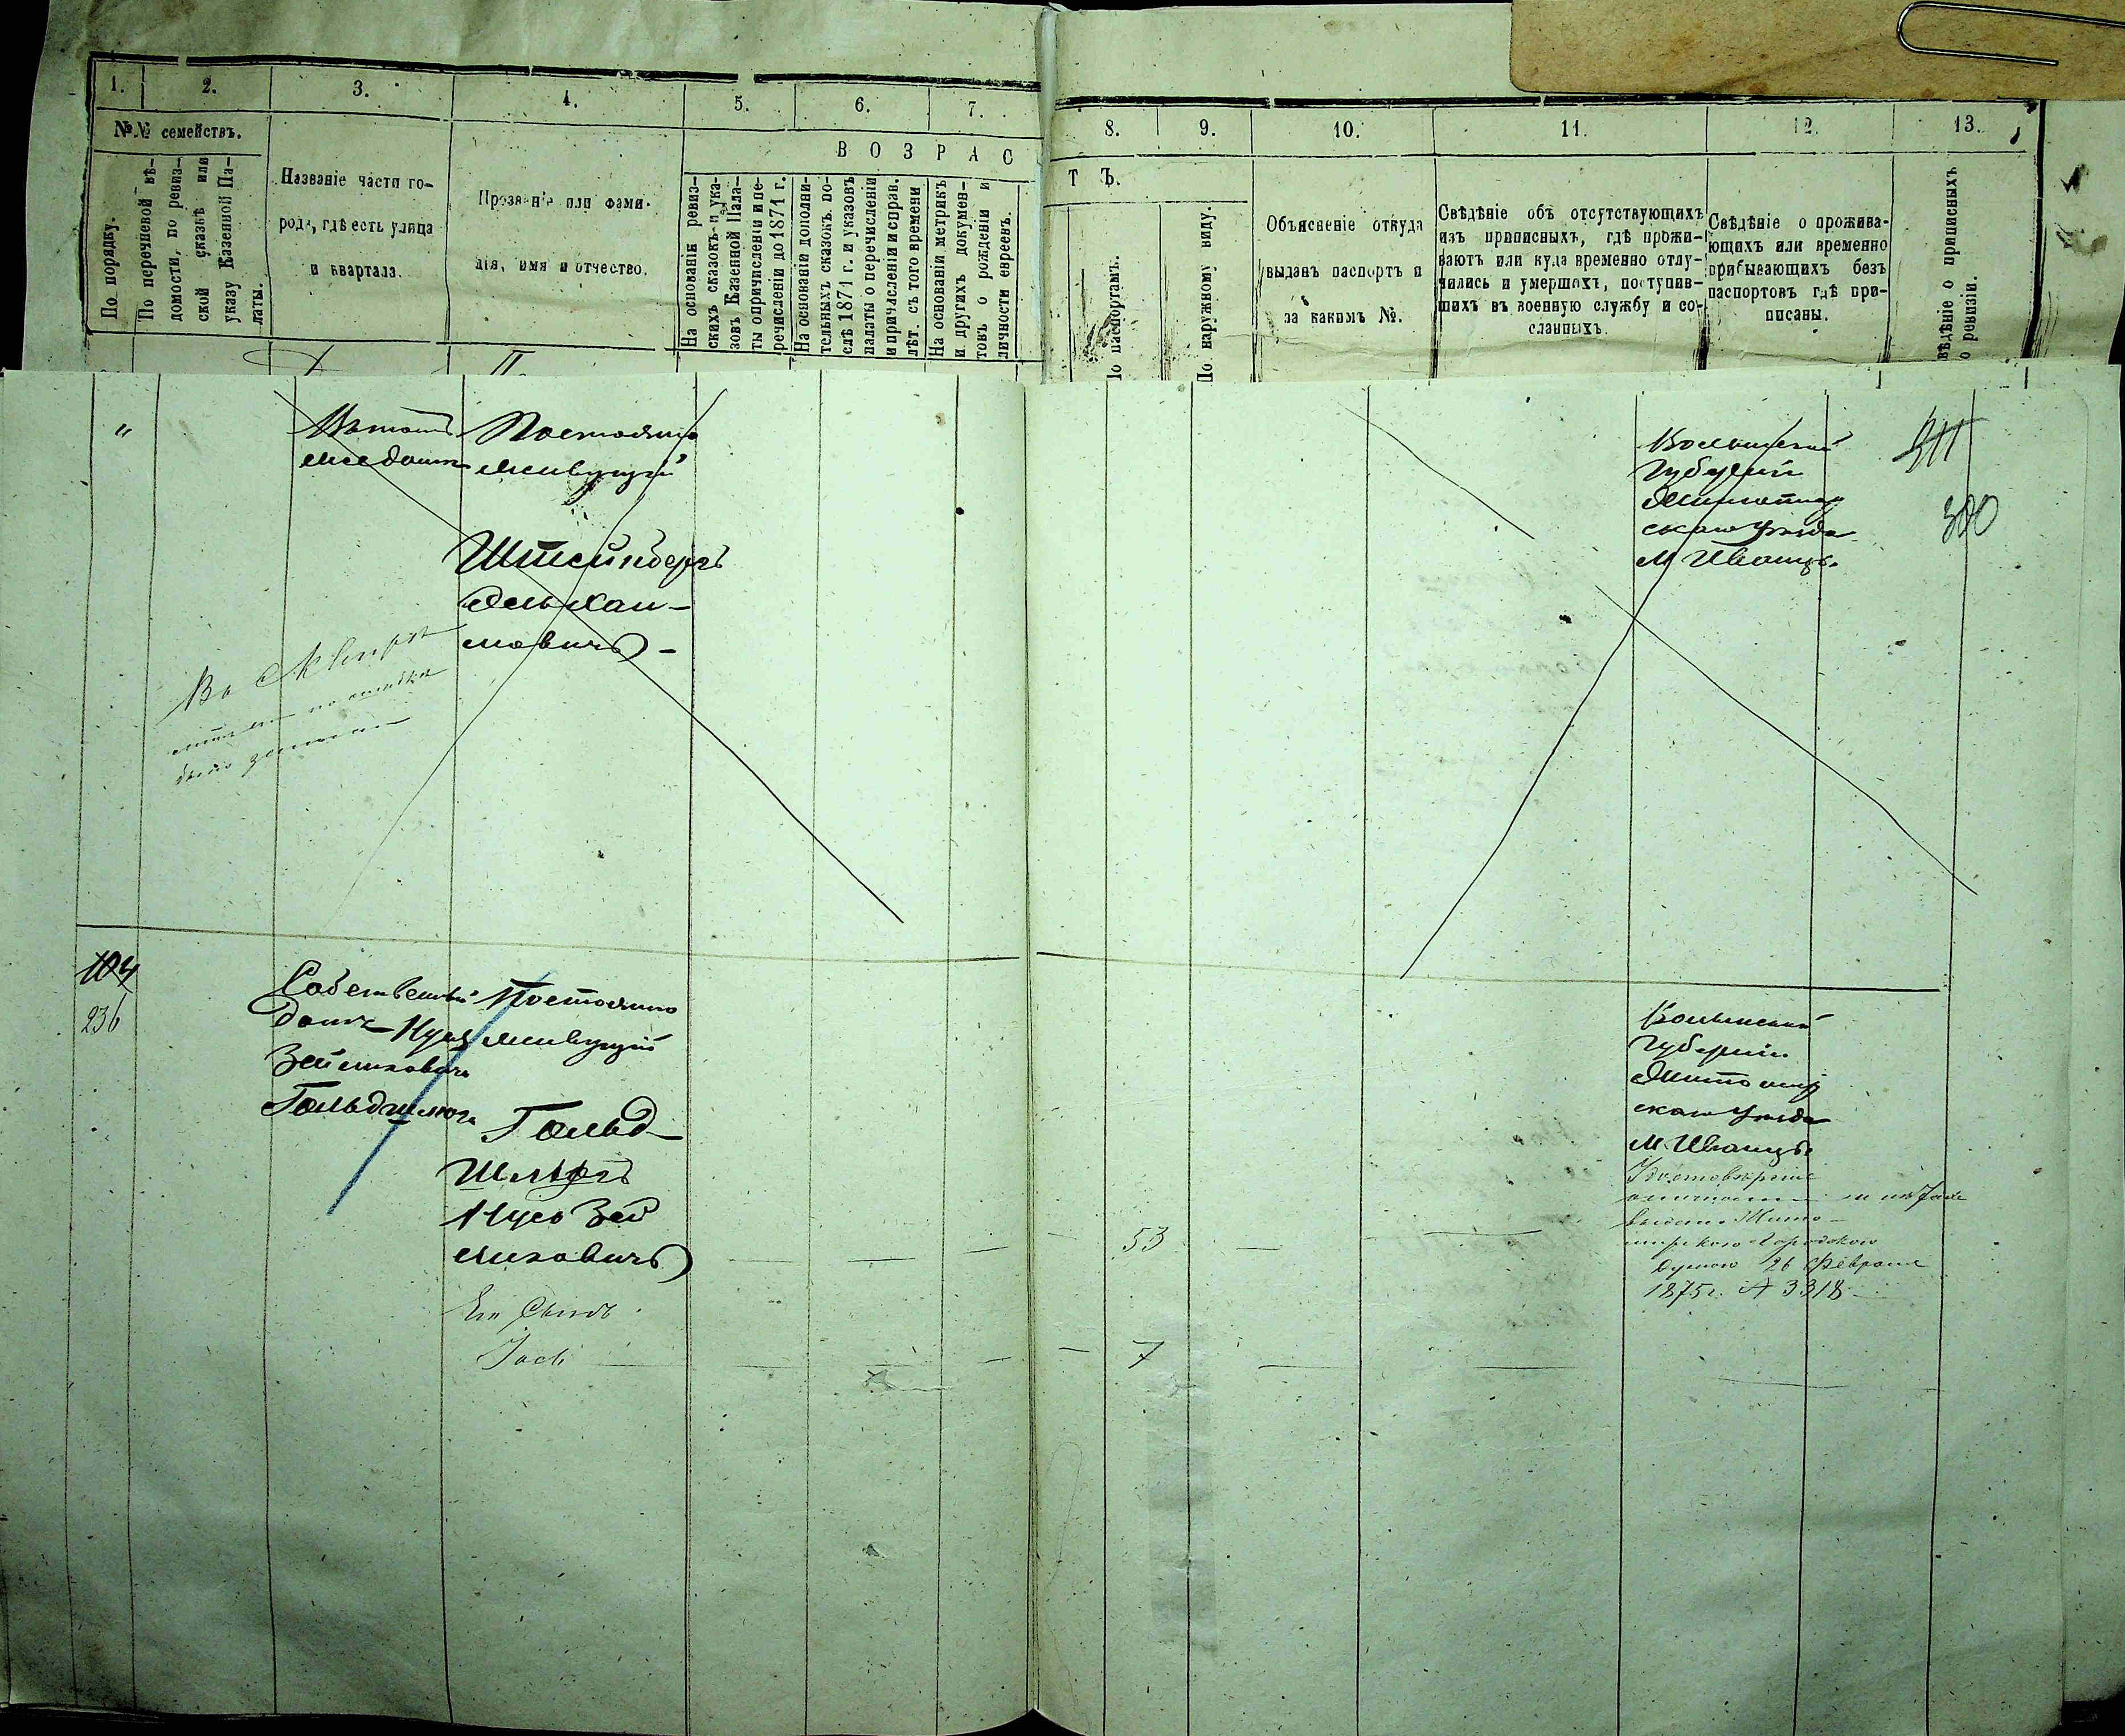 1.
2.
3.
4.
5.
6.
7.
8.
9.
10.
11.
12.
13.
№№ семействъ.
По порядку.
По перечневой вѣ-
домости, по ревиз-
ской сказкѣ или
указу Казенной Па-
латы.
Названіе части го-
рода, гдѣ есть улица
и квартала.
Прозваніе или фами-
лія, имя и отчество.
ВОЗРАС
ТЪ.
На основаніи ревиз-
скихъ сказокъ и ука-
зовъ Казенной Пала-
ты о причисленіи и пе-
речисленіи до 1871 г.
На основаніи дополни-
тельныхъ сказокъ по-
слѣ 1871 г. и указовъ
палаты о перечисленіи
и причисленіи и справ.
лѣт. съ того времени
На основаніи метрикъ
и другихъ докумен-
товъ о рожденіи и
личности евреевъ.
По паспортамъ.
По наружному виду.
Объясненіе откуда
выданъ паспортъ и
за какимъ №.
Свѣдѣніе объ отсутствующихъ
изъ приписныхъ, гдѣ прожи-
ваютъ или куда временно отлу-
чились и умершихъ, поступив-
шихъ въ военную службу и со-
сланныхъ.
Свѣдѣніе о прожива-
ющихъ или временно
прибывающихъ безъ
паспортовъ гдѣ при-
писаны.
вѣдѣніе о приписныхъ
о ревизіи.
"
Въ томъ
же домѣ
Постоянно
живущій
Штейнбергъ
Волынской
Губерніи
Житомир
скаго Уѣзда
М Иванцъ.
300
104
236
Собственный
домъ Нуся
Зейликовича
Гольдшмюга
Постоянно
живущій
Гольд-
Нусь Зей
ликовичъ
Его Сынъ
Іось
53
7
Волынской
Губерніи
Житомир
скаго Уѣзда
М. Иванцъ.
Удостовѣреніе
о личности
выдано Жито-
мирскою Городскою
Думою 26 Февраля
1875 г. № 3318